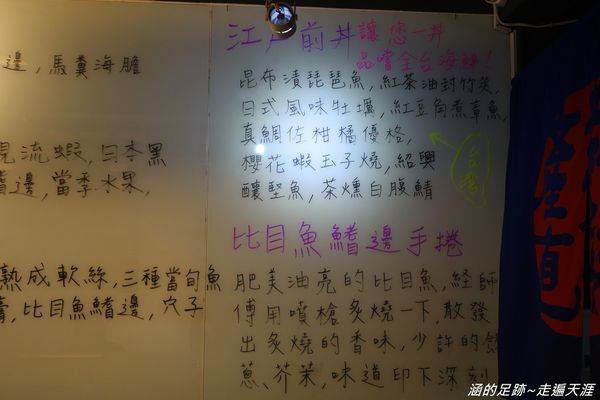 邊,馬糞海膽
流蝦,日本黑
邊,當季水果,
熟成軟絲,三種當旬魚
比目魚鰭邊,穴子
江戶前丼 讓您一丼
品嚐全台海鮮!
昆布漬琵琶魚,紅茶油封竹筴,
日式風味牡蠣,紅豆角煮章魚,
真鯛佐柑橘優格,
櫻花蝦玉子燒,紹興
釀堅魚,茶燻白腹鯖
台灣
比目魚鰭邊手捲
肥美油亮的比目魚,經師
傅用噴槍炙燒一下,散發
出炙燒的香味,少許的
蔥、芥茉,味道印下深刻
涵的足跡~走遍天涯